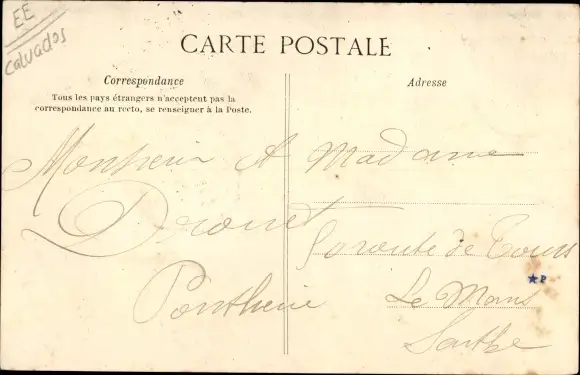 EE
Calvados
CARTE POSTALE
Correspondance
Tous les pays étrangers n'acceptent pas la
correspondance au recto, se renseigner à la Poste.
Adresse
Monsieur et Madame
Drouet
route de Tours
Le Mans
Sarthe
★P